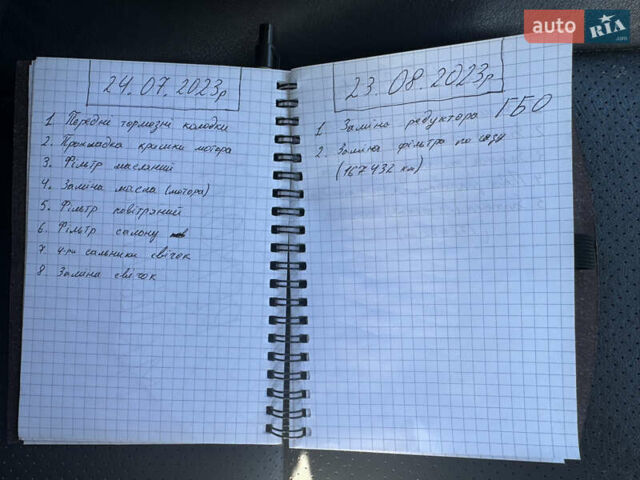 auto RIA .com
24.07.2023р
1. Передні тормозні колодки
2. Прокладка кришки мотора
3. Фільтр масляний
4. Заміна масла (мотора)
5. Фільтр повітряний
6. Фільтр салону
7. 4-ри сальники свічок
8. Заміна свічок
23.08.2023р.
1. Заміна редуктора ГБО
2. Заміна фільтра по газу
(167432 км)